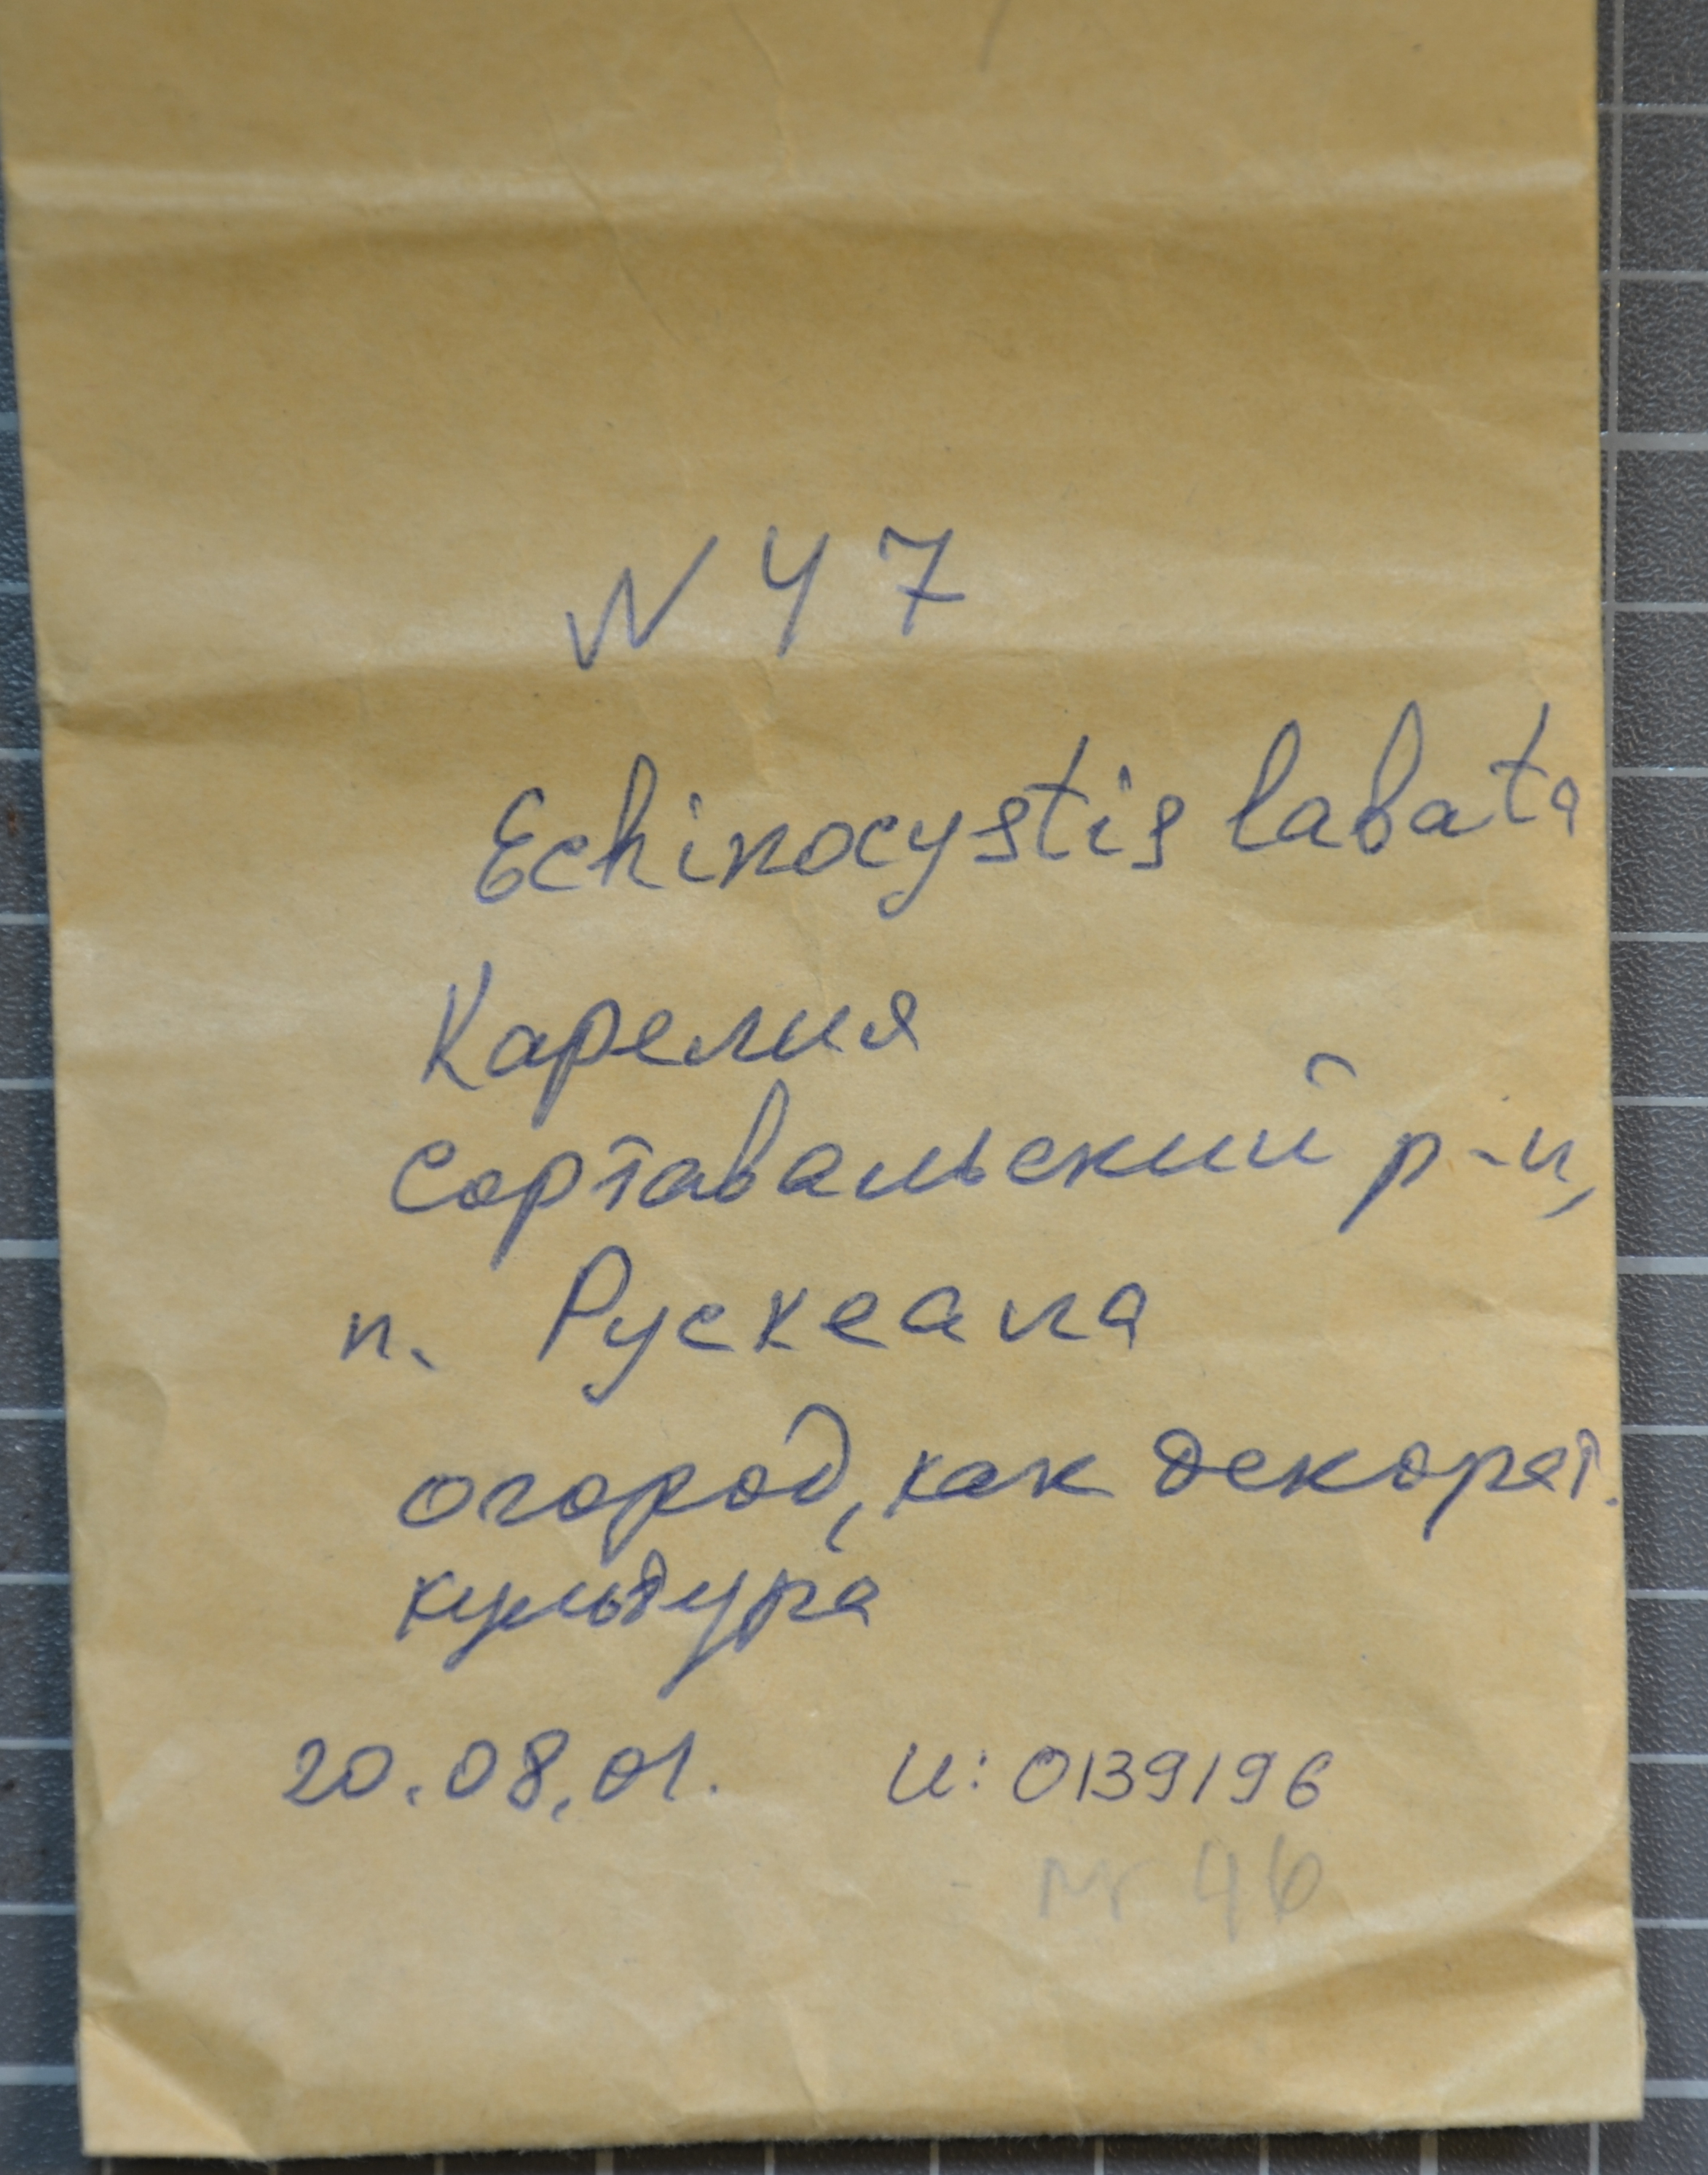 N 47
Echinocystis labata
Карелия
Сортавальский р-н,
п. Рускеала
огород, как декорат.
культура
20.08.01. И: 0139196
Nr 46